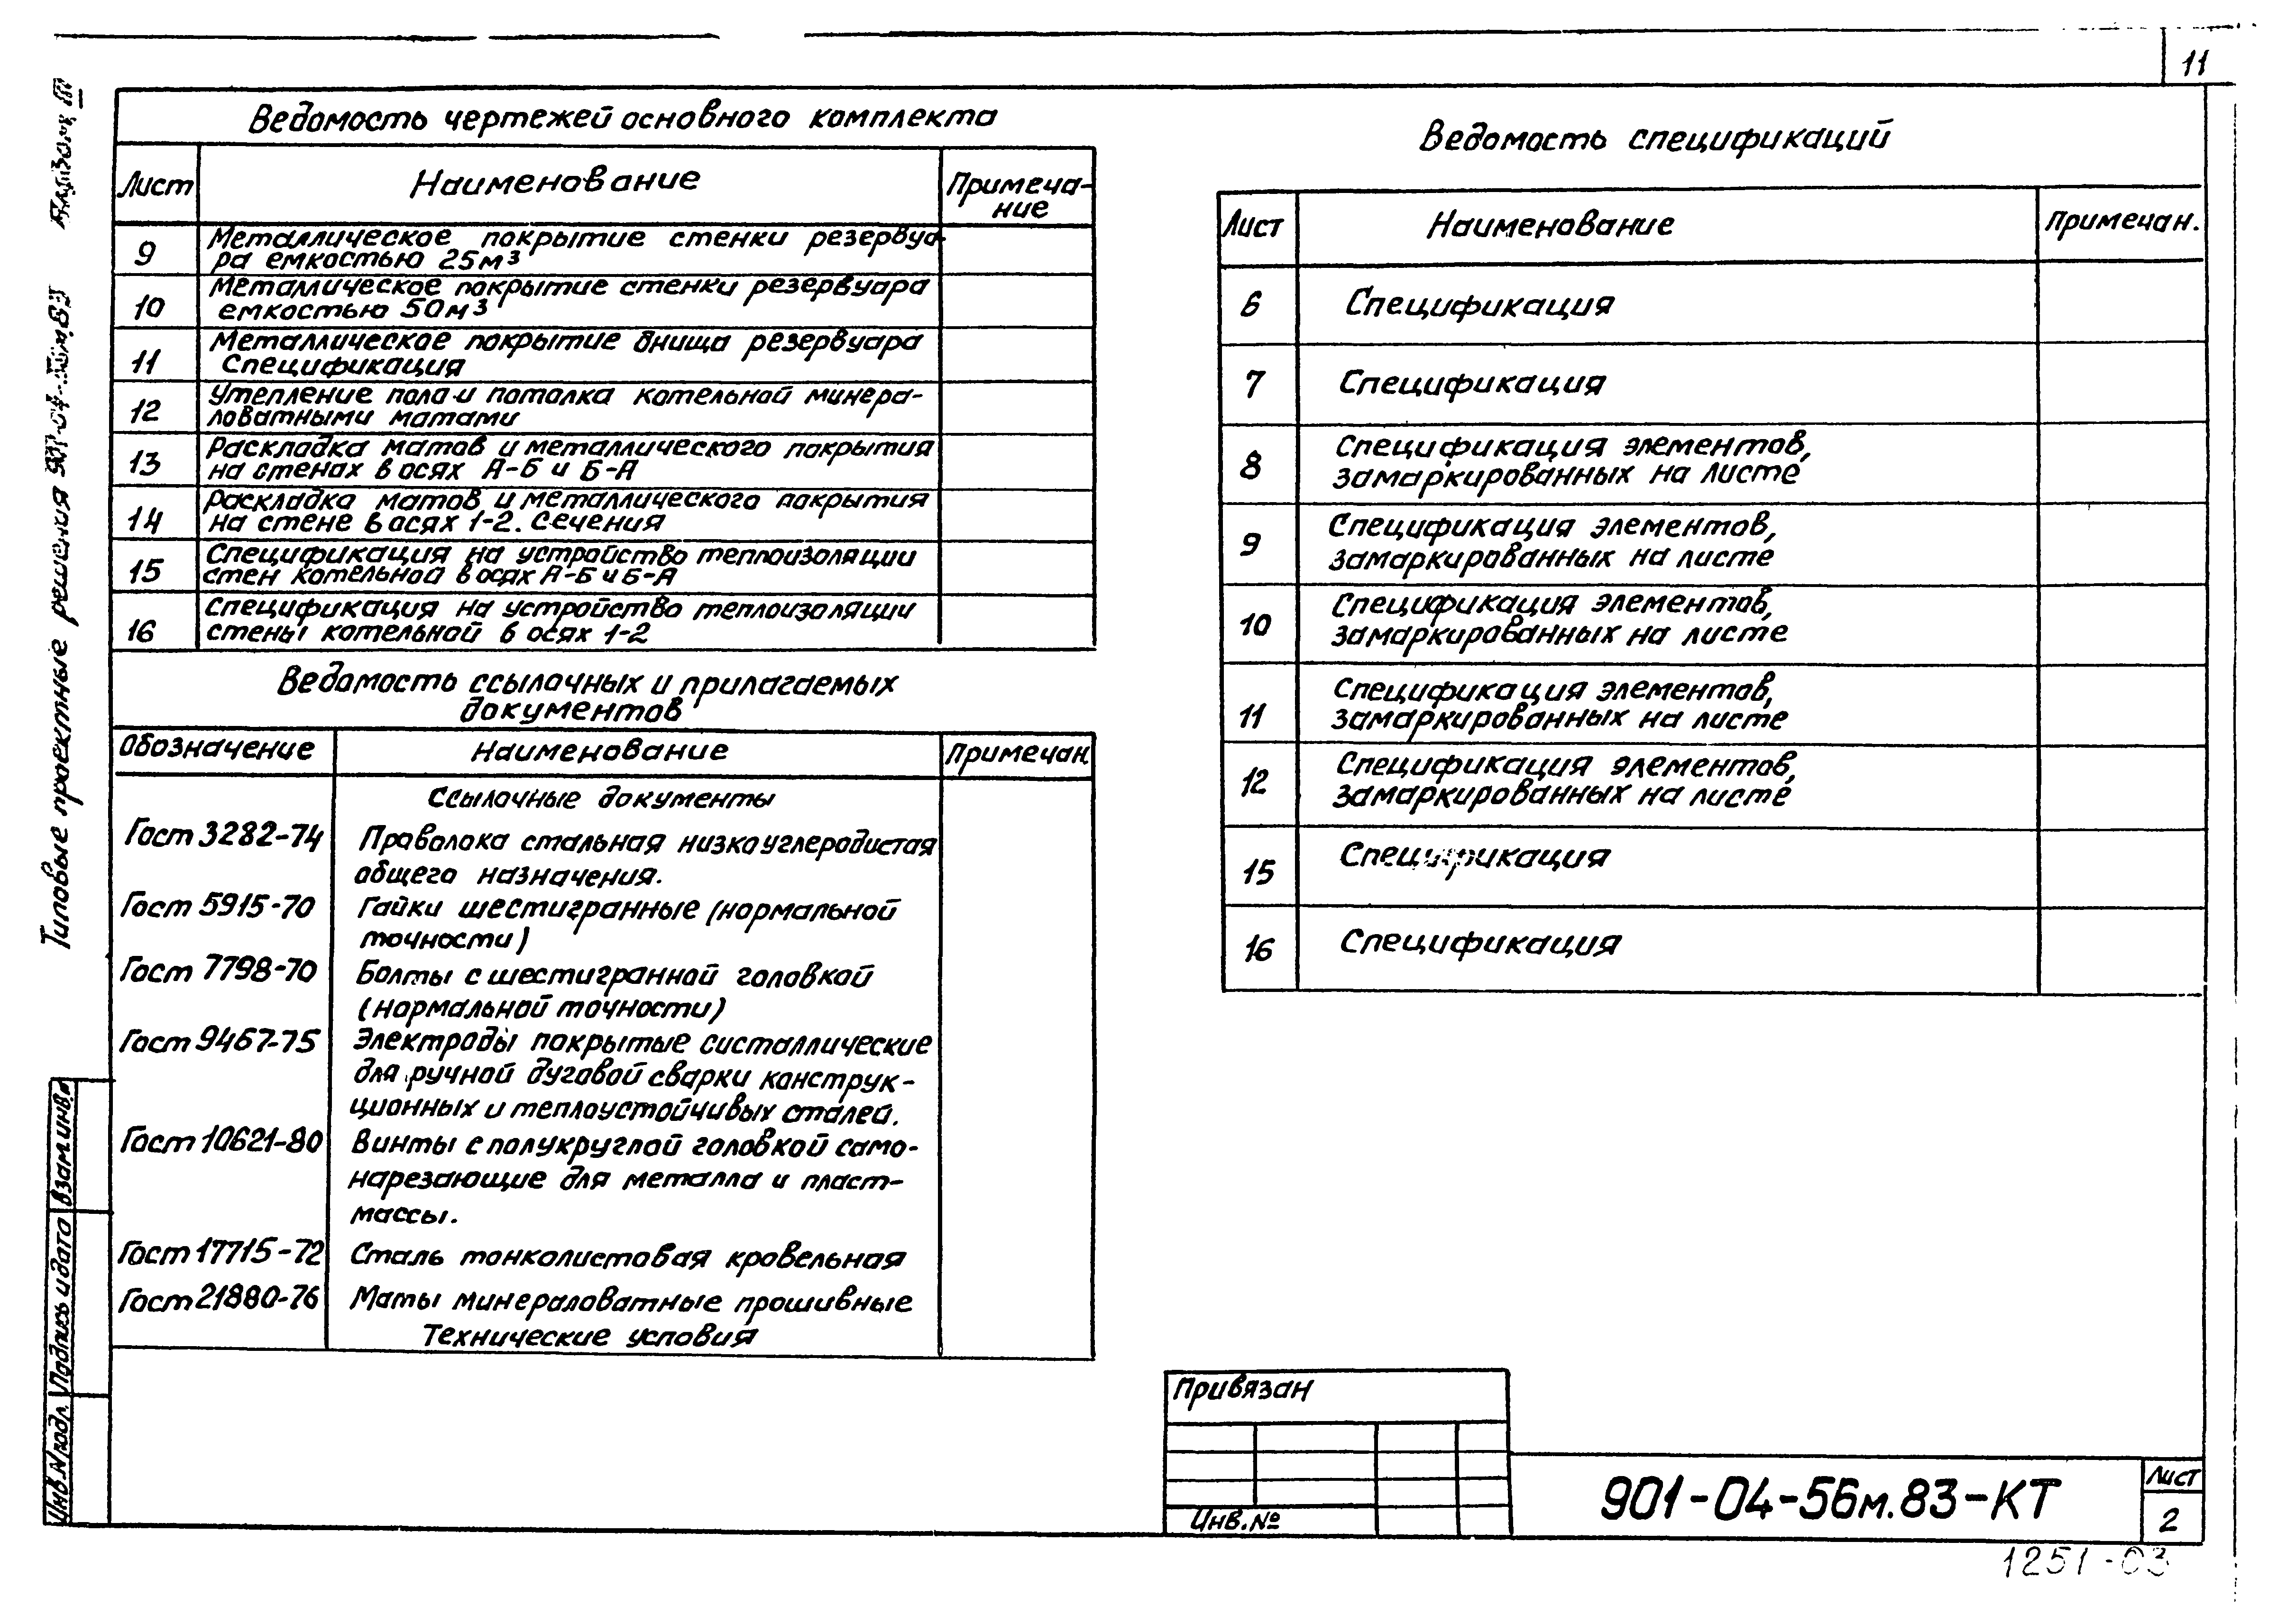 11
Альбом III
Типовые проектные решения 901-04-56м.83
Ведомость чертежей основного комплекта
Лист Наименование Примеча-
ние
9 Металлическое покрытие стенки резервуа-
ра емкостью 25м³
10 Металлическое покрытие стенки резервуара
емкостью 50м³
11 Металлическое покрытие днища резервуара
Спецификация
12 Утепление пола и потолка котельной минера-
ловатными матами
13 Раскладка матов и металлического покрытия
на стенах в осях А-Б и Б-А
14 Раскладка матов и металлического покрытия
на стене в осях 1-2. Сечения
15 Спецификация на устройство теплоизоляции
стен котельной в осях А-Б и Б-А
16 Спецификация на устройство теплоизоляции
стены котельной в осях 1-2
Ведомость ссылочных и прилагаемых
документов
Обозначение Наименование Примечан.
Ссылочные документы
Гост 3282-74 Проволока стальная низкоуглеродистая
общего назначения.
Гост 5915-70 Гайки шестигранные (нормальной
точности)
Гост 7798-70 Болты с шестигранной головкой
(нормальной точности)
Гост 9467-75 Электроды покрытые систаллические
для ручной дуговой сварки конструк-
ционных и теплоустойчивых сталей.
Гост 10621-80 Винты с полукруглой головкой само-
нарезающие для металла и пласт-
массы.
Гост 17715-72 Сталь тонколистовая кровельная
Гост 21880-76 Маты минераловатные прошивные
Технические условия
Ведомость спецификаций
Лист Наименование Примечан.
6 Спецификация
7 Спецификация
8 Спецификация элементов,
замаркированных на листе
9 Спецификация элементов,
замаркированных на листе
10 Спецификация элементов,
замаркированных на листе
11 Спецификация элементов,
замаркированных на листе
12 Спецификация элементов,
замаркированных на листе
15 Спецификация
16 Спецификация
Инв.№подл. Подпись и дата Взам.инв.№
Привязан
Инв.№
901-04-56м.83-КТ
Лист
2
1251-03